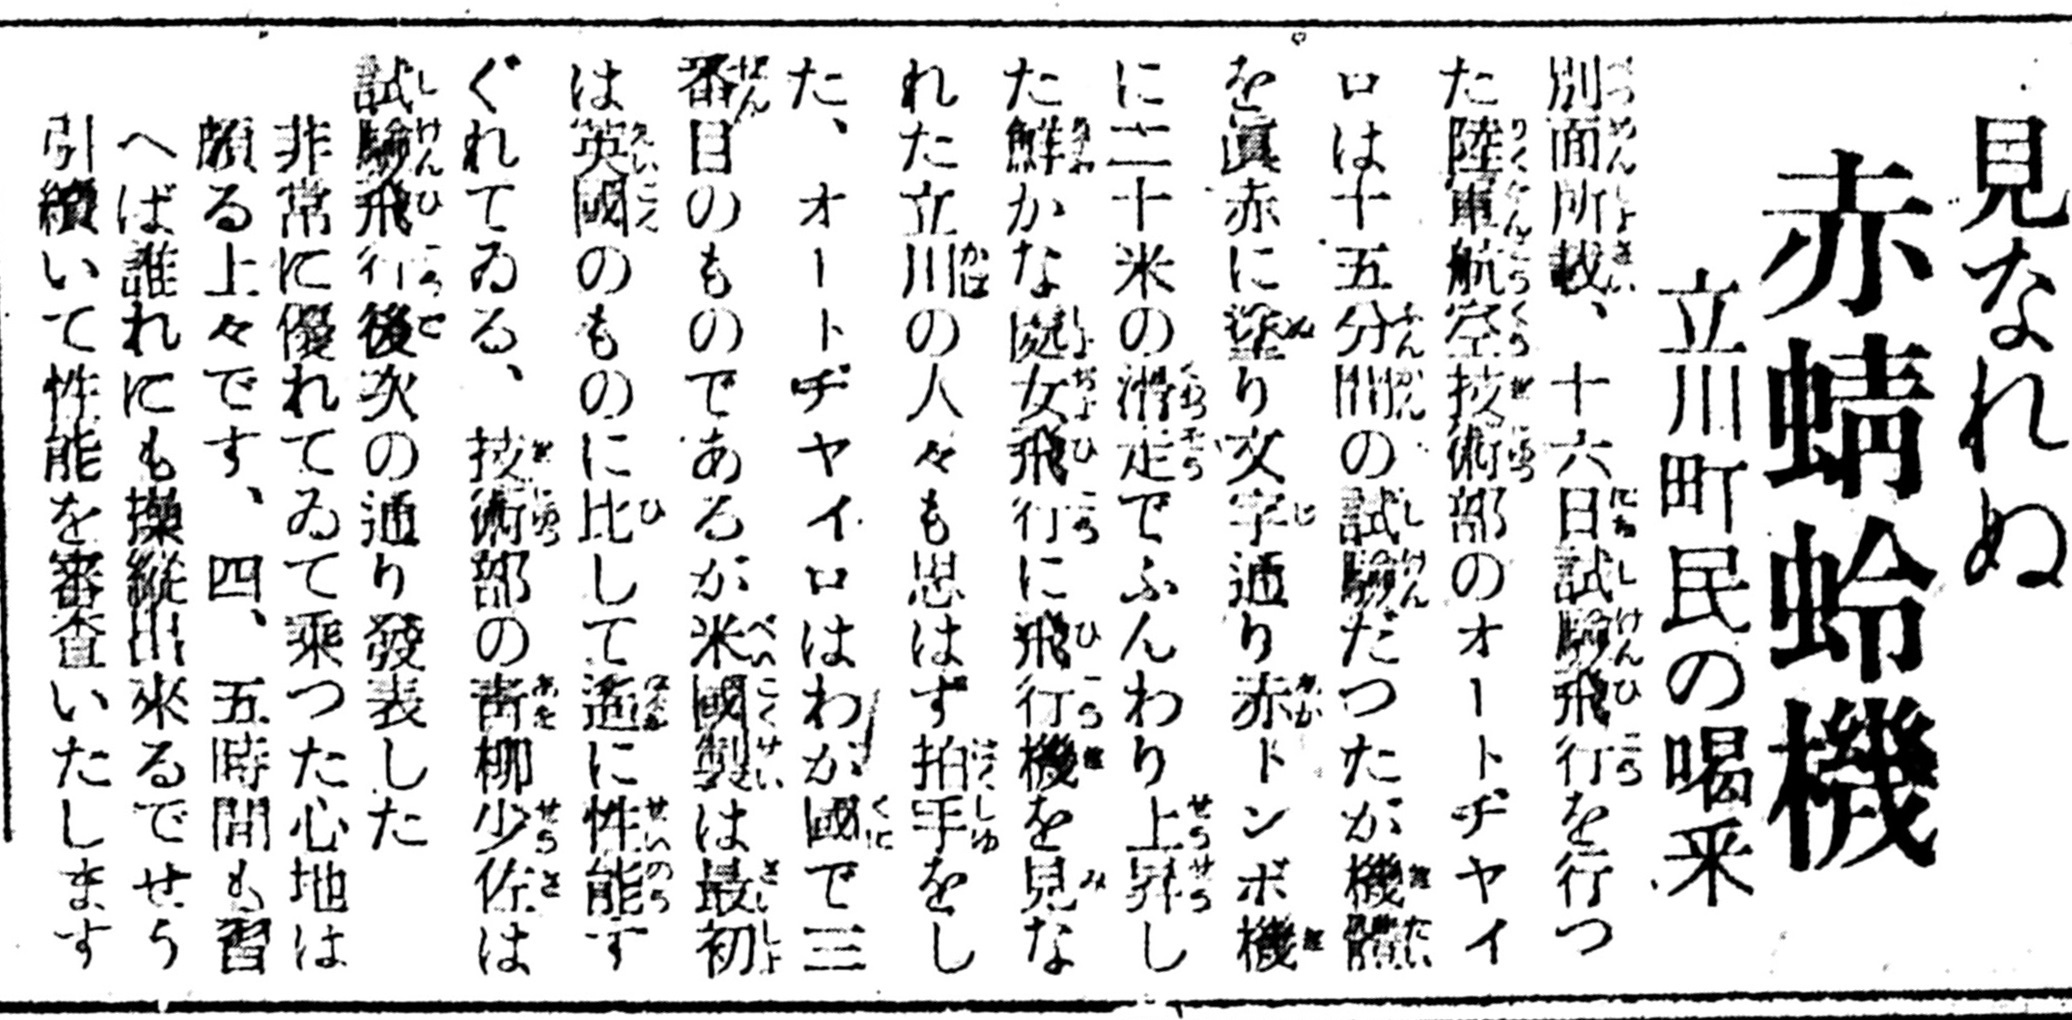 見なれぬ
赤蜻蛉機
立川町民の喝采
別面所載、十六日試驗飛行を行つ
た陸軍航空技術部のオートヂヤイ
ロは十五分間の試驗だつたが機體
を眞赤に塗り文字通り赤トンボ機
に二十米の滑走でふんわり上昇し
た鮮かな處女飛行に飛行機を見な
れた立川の人々も思はず拍手をし
た、オートヂヤイロはわが國で三
番目のものであるが米國製は最初
は英國のものに比して遙に性能す
ぐれてゐる、技術部の靑柳少佐は
試驗飛行後次の通り發表した
非常に優れてゐて乘つた心地は
頗る上々です、四、五時間も習
へば誰れにも操縱出來るでせう
引續いて性能を審査いたします